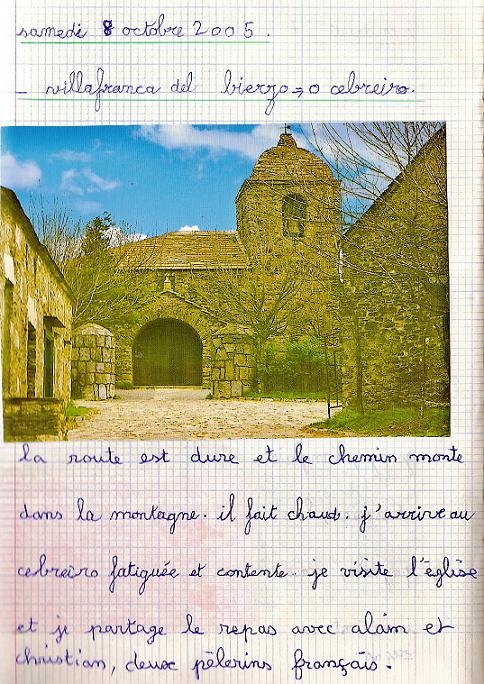 samedi 8 octobre 2005.
- villafranca del bierzo → o cebreiro.
la route est dure et le chemin monte
dans la montagne. il fait chaud. j'arrive au
cebreiro fatiguée et contente. je visite l'église
et je partage le repas avec alain et
christian, deux pèlerins français.